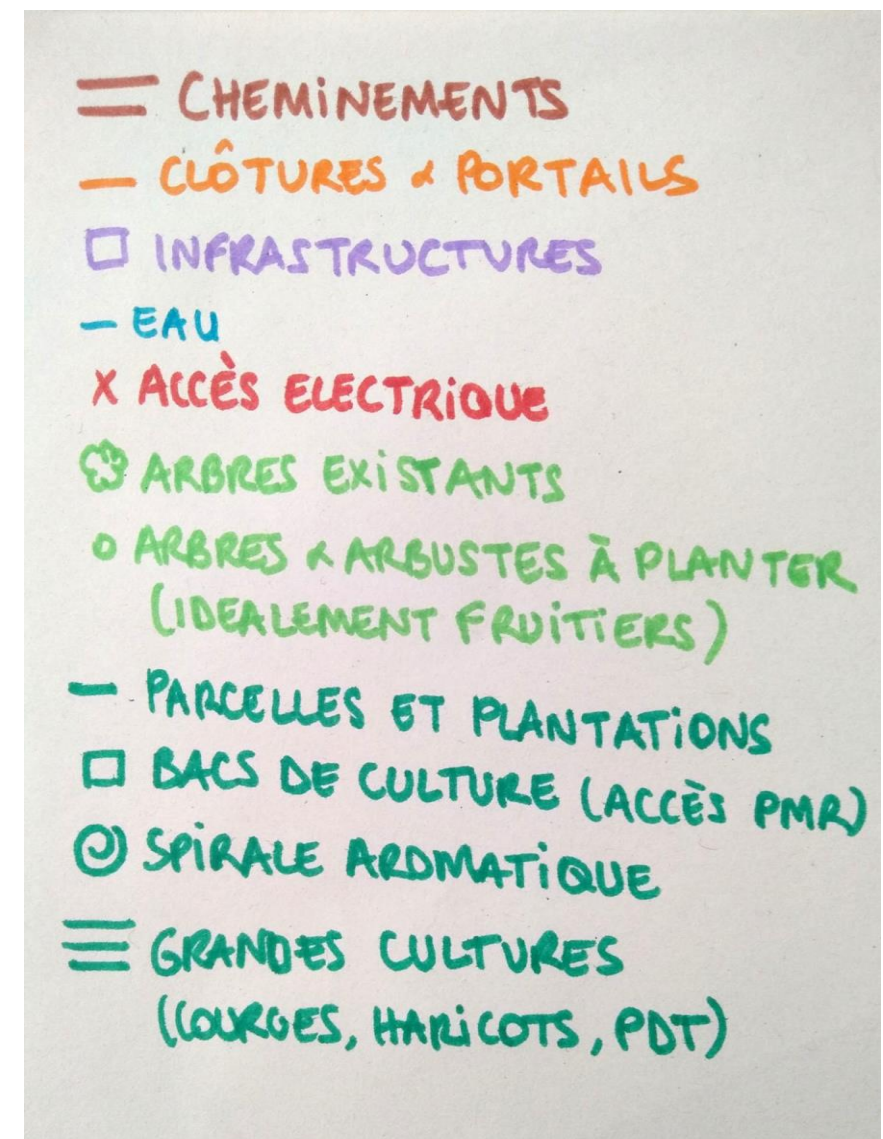 CHEMINEMENTS
CLÔTURES & PORTAILS
INFRASTRUCTURES
EAU
X ACCÈS ELECTRIQUE
ARBRES EXISTANTS
ARBRES & ARBUSTES À PLANTER
(IDEALEMENT FRUITIERS)
PARCELLES ET PLANTATIONS
BACS DE CULTURE (ACCÈS PMR)
SPIRALE AROMATIQUE
GRANDES CULTURES
(COURGES, HARICOTS, PDT)